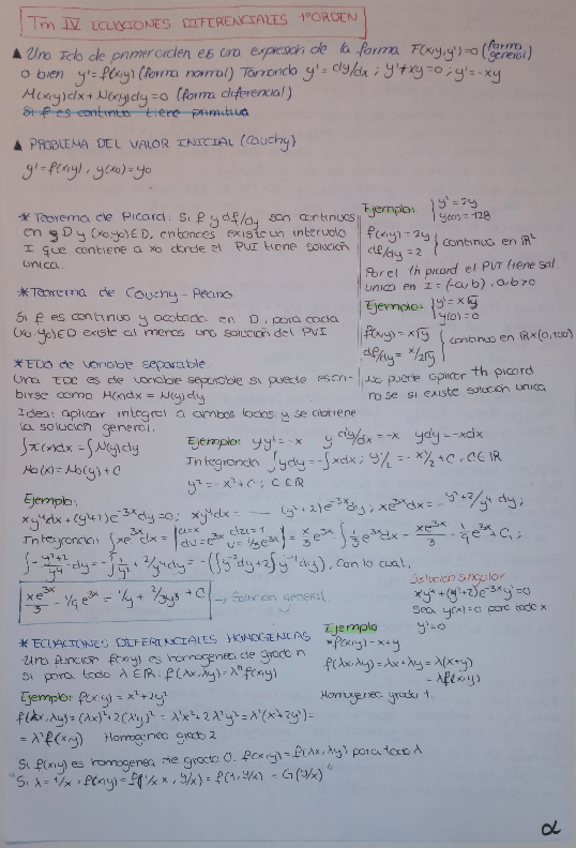 Tm IV ECUACIONES DIFERENCIALES 1ºORDEN
▲ Una Edo de primer orden es una expresión de la forma F(x,y,y')=0 (forma general)
o bien y'=f(x,y) (forma normal) Tomando y'=dy/dx ; y'+xy=0 ; y'=-xy
M(x,y)dx+N(x,y)dy=0 (forma diferencial)
Si f es continua tiene primitiva
▲ PROBLEMA DEL VALOR INICIAL (Cauchy)
y'=f(x,y), y(x0)=y0
*Teorema de Picard: Si f y df/dy son continuas
en D y (x0,y0)∈D, entonces existe un intervalo
I que contiene a x0 donde el PVI tiene solución
unica.
Ejemplo: { y'=2y
y(0)=-128
f(x,y)=2y
df/dy=2 } continua en ℝ²
Por el th picard el PVI tiene sol.
unica en I=(-a,b), a,b>0
*Teorema de Cauchy-Peano
Si f es continua y acotada en D, para cada
(x0,y0)∈D existe al menos una solución del PVI
Ejemplo: { y'=x√y
y(0)=0
f(x,y)=x√y
df/dy=x/2√y } continua en ℝx(0,+∞)
No puedo aplicar th picard
no se si existe solución unica
*EDO de variable separable
Una EDO es de variable separable si puede escri-
birse como M(x)dx=N(y)dy
Idea: aplicar integral a ambos lados y se obtiene
la solución general.
∫M(x)dx=∫N(y)dy
M0(x)=N0(y)+C
Ejemplo: yy'=-x y dy/dx=-x ydy=-xdx
Integrando ∫ydy=-∫xdx; y²/2=-x²/2+C, C∈ℝ
y²=-x²+C; C∈ℝ
Ejemplo:
xy⁴dx+(y²+2)e^-3x dy=0; xy⁴dx=-(y²+2)e^-3x dy; xe^3x dx=-y²+2/y⁴ dy;
Integrando: ∫xe^3x dx=|u=x du=1 dv=e^3x v=1/3e^3x|=x/3 e^3x-∫1/3 e^3x dx=xe^3x/3-1/9 e^3x+C1;
∫-y²+2/y⁴ dy=-∫1/y²+2/y⁴ dy=-(∫y^-2 dy+2∫y^-4 dy), con lo cual,
xe^3x/3-1/9 e^3x=1/y+2/3y³+C → Solución general.
Solución singular
xy⁴+(y²+2)e^-3x y'=0
Sea y(x)=0 para todo x
y'=0
*ECUACIONES DIFERENCIALES HOMOGENEAS
Una función f(x,y) es homogenea de grado n
si para todo λ∈ℝ. f(λx,λy)=λⁿf(x,y)
Ejemplo: f(x,y)=x²+2y²
f(λx,λy)=(λx)²+2(λy)²=λ²x²+2λ²y²=λ²(x²+2y²)=
=λ²f(x,y) Homogenea grado 2
Ejemplo
*f(x,y)=x+y
f(λx,λy)=λx+λy=λ(x+y)
=λf(x,y)
Homogenea grado 1.
Si f(x,y) es homogenea de grado 0. f(x,y)=f(λx,λy) para todo λ
"Si λ=1/x, f(x,y)=f(1/x x, y/x)=f(1,y/x)=G(y/x)"
α